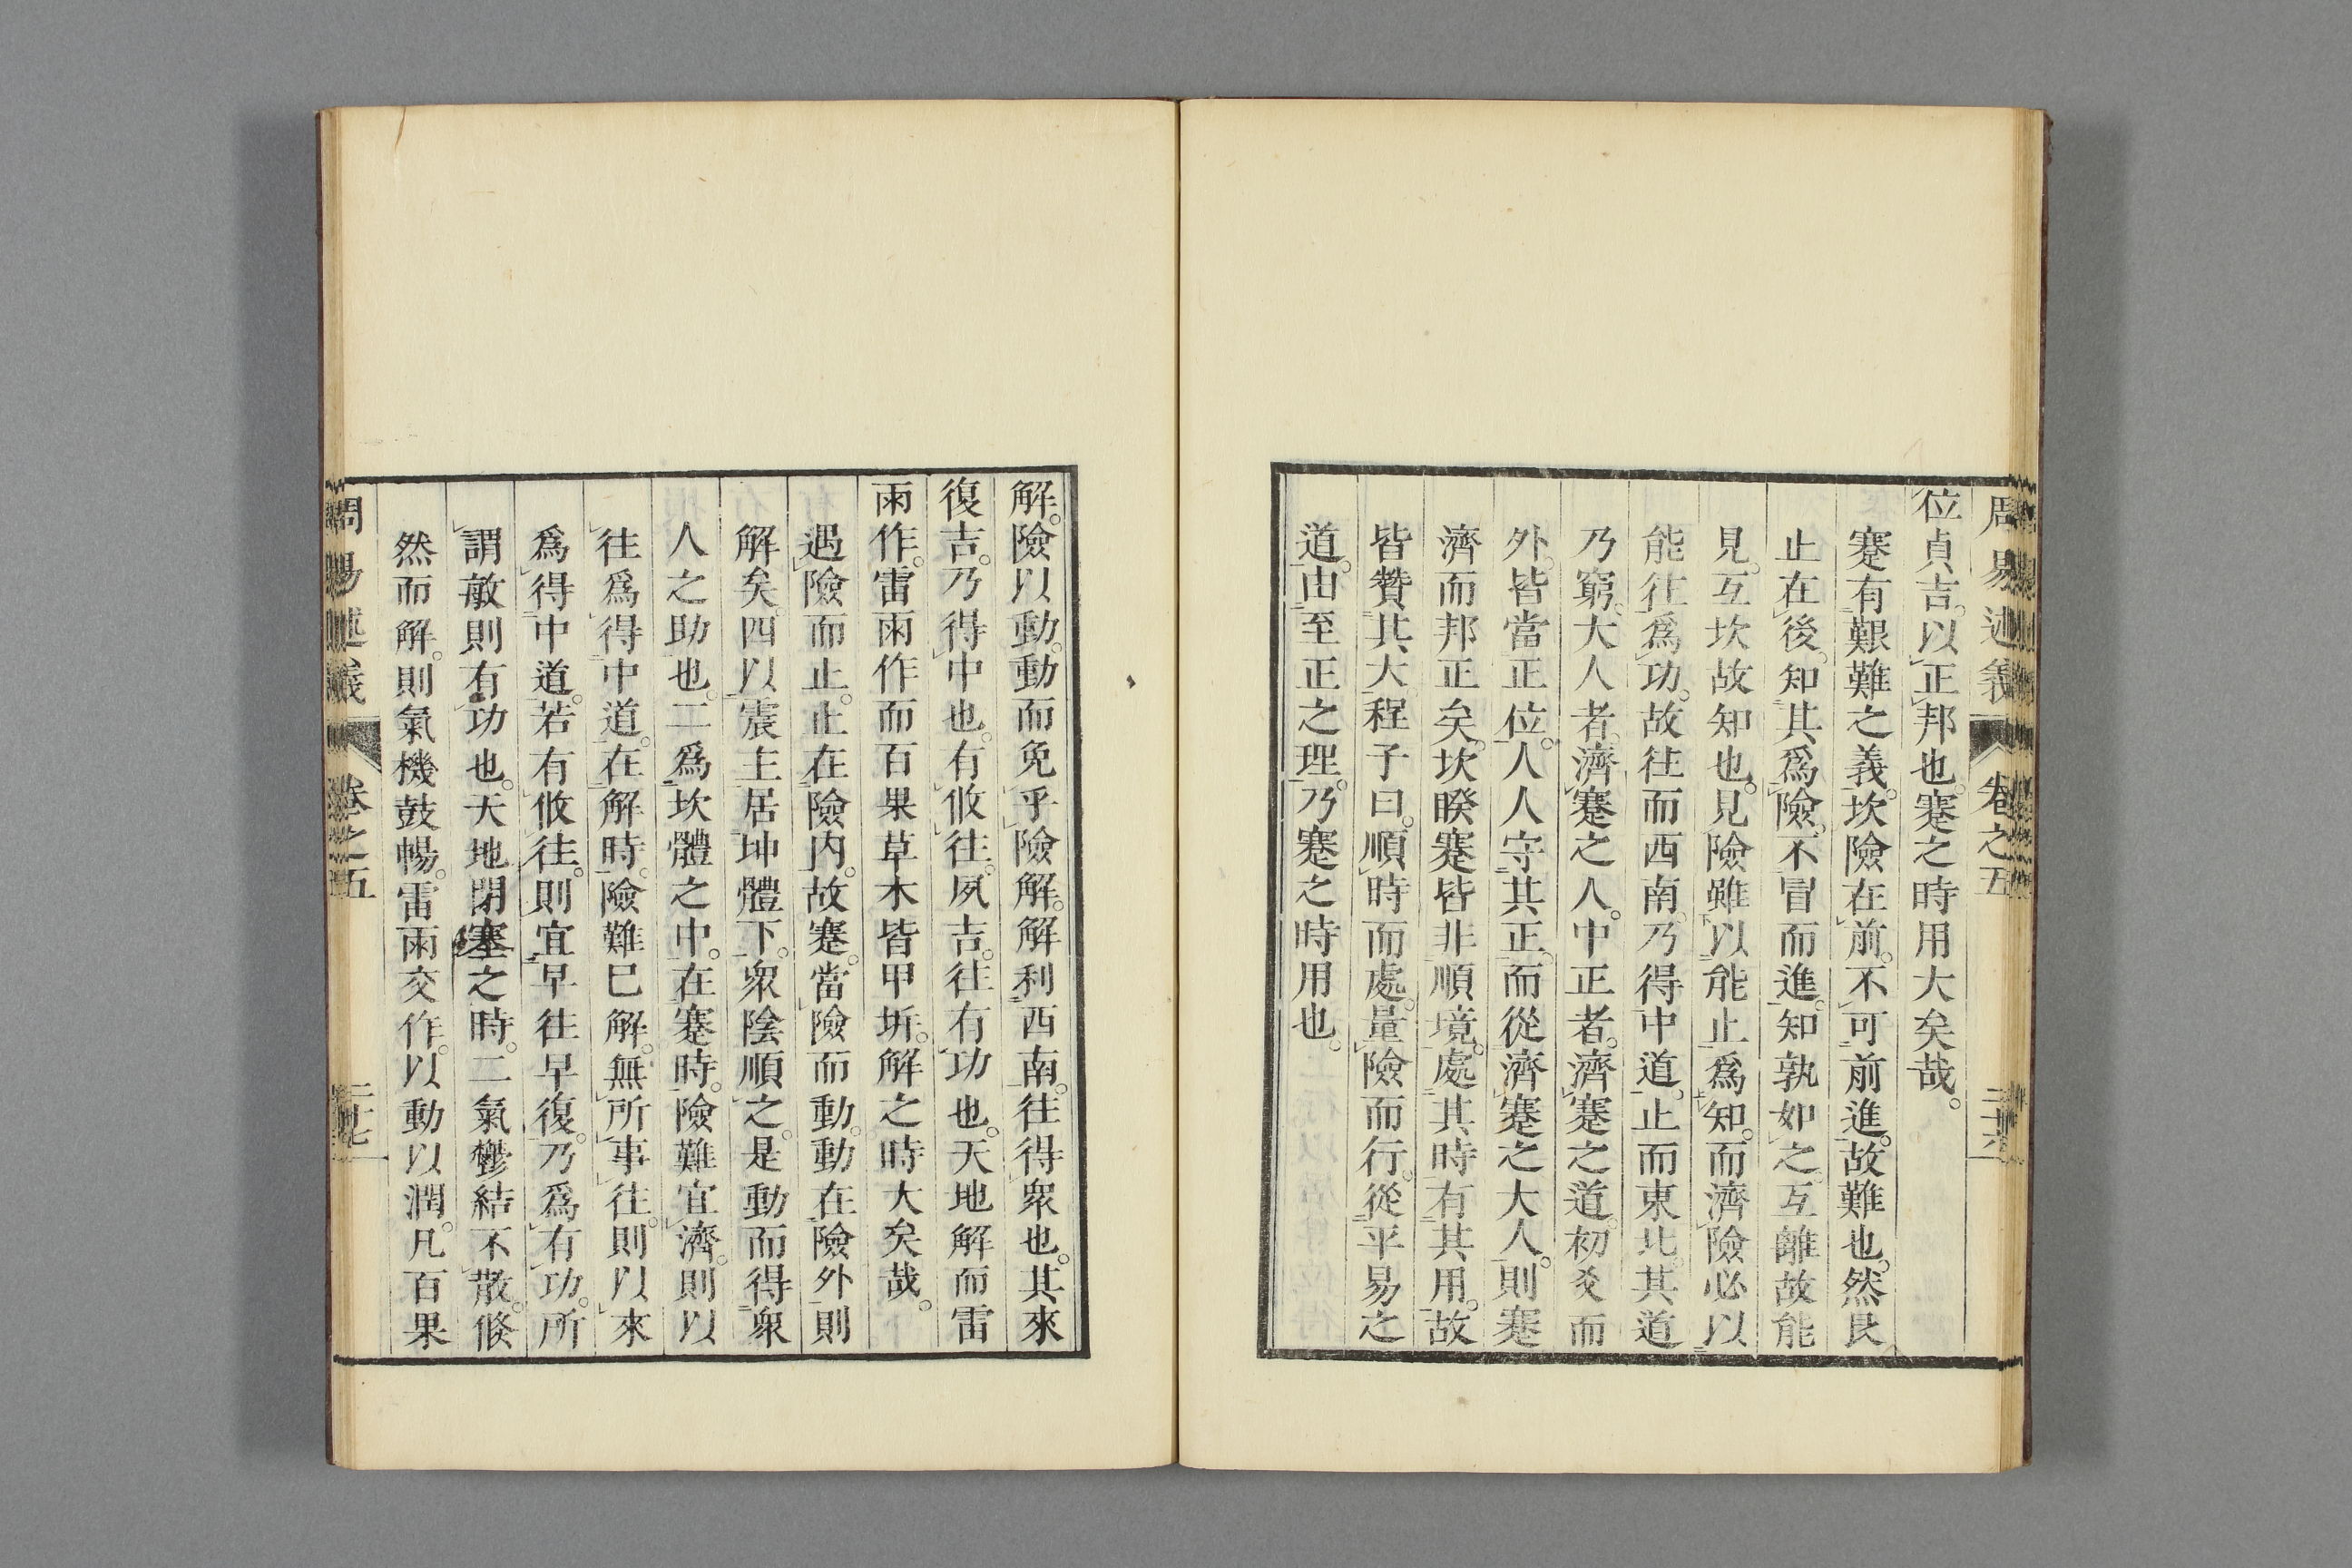 周易述義 卷之五 二十六
位貞吉。以正邦也。蹇之時用大矣哉。
蹇有艱難之義。坎險在前。不可前進。故難也。然艮
止在後。知其爲險。不冒而進。知孰如之。互離故能
見。互坎故知也。見險雖以能止爲知。而濟險必以
能往爲功。故往而西南。乃得中道。止而東北。其道
乃窮。大人者。濟蹇之人。中正者。濟蹇之道。初爻而
外。皆當正位。人人守其正。而從濟蹇之大人。則蹇
濟而邦正矣。坎睽蹇皆非順境。處其時有其用。故
皆贊其大。程子曰。順時而處。量險而行。從平易之
道。由至正之理。乃蹇之時用也。
解。險以動。動而免乎險解。解利西南。往得衆也。其來
復吉。乃得中也。有攸往。夙吉。往有功也。天地解而雷
雨作。雷雨作而百果草木皆甲坼。解之時大矣哉。
遇險而止。止在險內。故蹇。當險而動。動在險外。則
解矣。四以震主居坤體下。衆陰順之。是動而得衆
人之助也。二爲坎體之中。在蹇時。險難宜濟。則以
往爲得中道。在解時。險難已解。無所事往。則以來
爲得中道。若有攸往。則宜早往早復。乃爲有功。所
謂敏則有功也。天地閉塞之時。二氣鬱結不散。倏
然而解。則氣機鼓暢。雷雨交作。以動以潤。凡百果
周易述義 卷之五 二十七